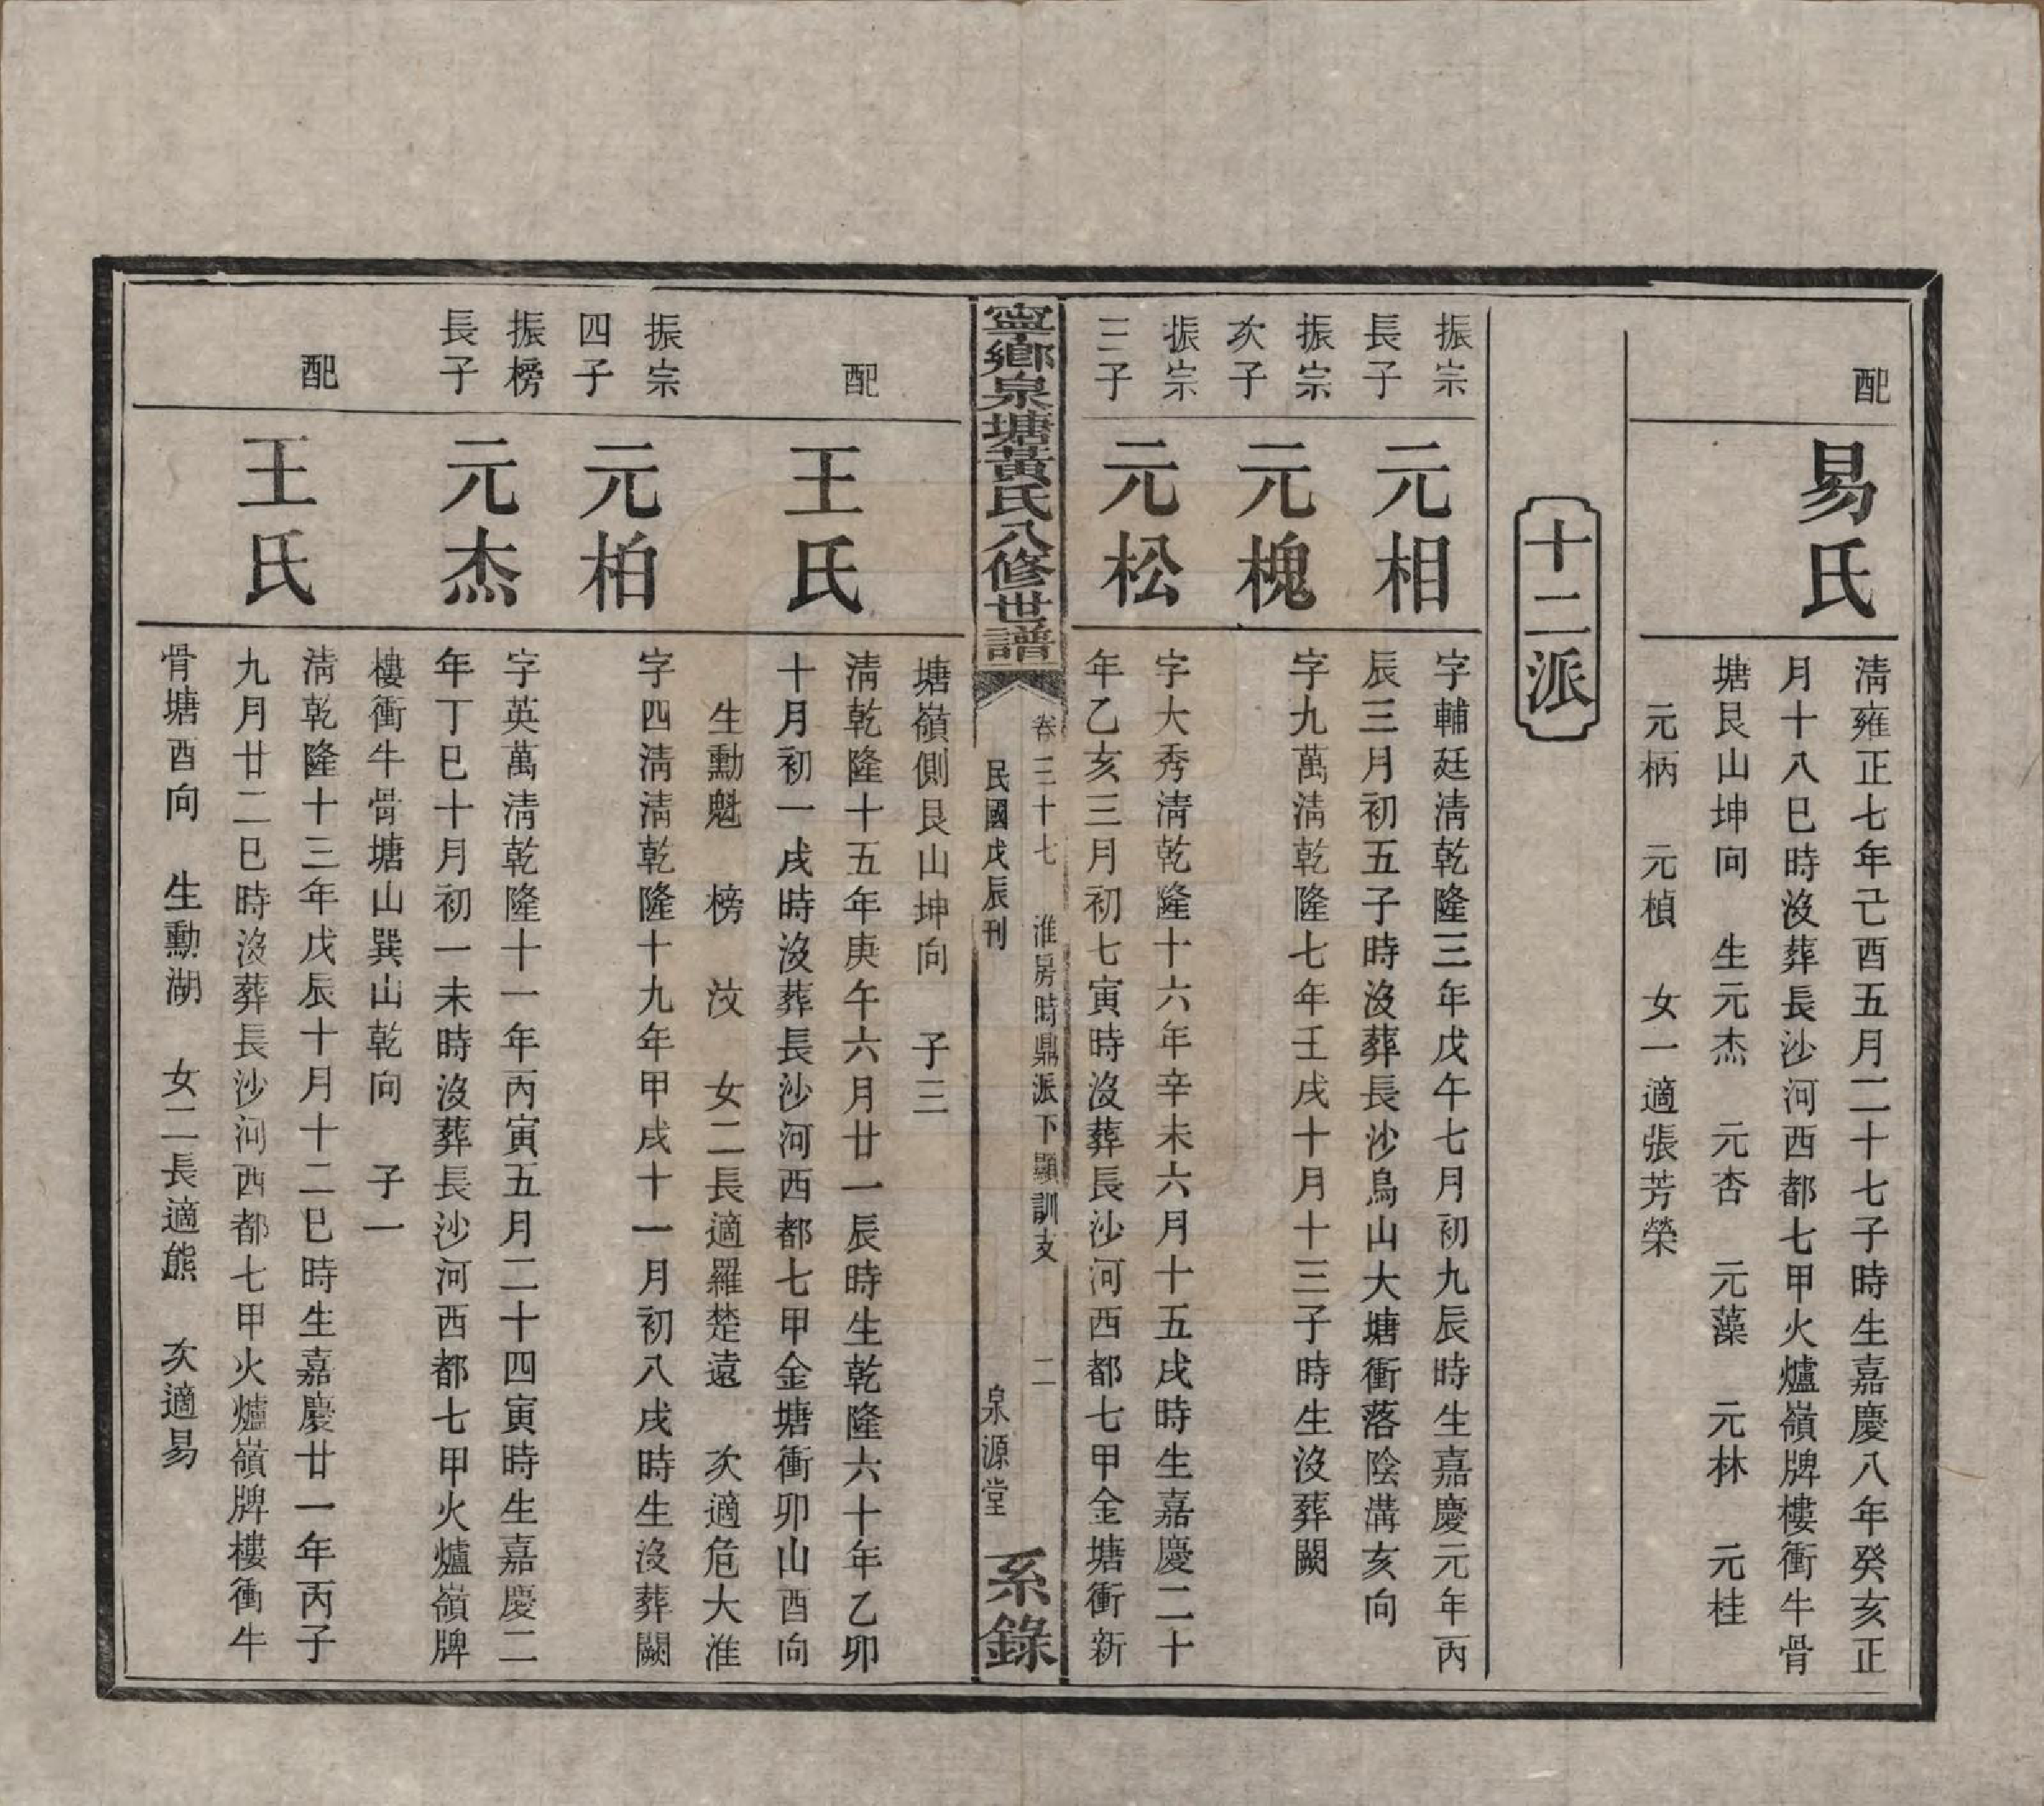 配
易氏
淸雍正七年己酉五月二十七子時生嘉慶八年癸亥正
月十八巳時沒葬長沙河西都七甲火爐嶺牌樓衝牛骨
塘艮山坤向　生元杰　元杏　元藻　元林　元桂
元柄　元楨　女一適張芳榮
十二派
振宗
長子
元相
字輔廷淸乾隆三年戊午七月初九辰時生嘉慶元年丙
辰三月初五子時沒葬長沙烏山大塘衝落陰溝亥向
振宗
次子
元槐
字九萬淸乾隆七年壬戌十月十三子時生沒葬闕
振宗
三子
元松
字大秀淸乾隆十六年辛未六月十五戌時生嘉慶二十
年乙亥三月初七寅時沒葬長沙河西都七甲金塘衝新
寧鄉泉塘黃氏八修世譜
卷三十七　淮房時鼎派下顯訓支　二
民國戊辰刊
泉源堂
系錄
塘嶺側艮山坤向　子三
配
王氏
淸乾隆十五年庚午六月廿一辰時生乾隆六十年乙卯
十月初一戌時沒葬長沙河西都七甲金塘衝卯山酉向
生勳魁　榜　汶　女二長適羅楚遠　次適危大淮
振宗
四子
元柏
字四淸淸乾隆十九年甲戌十一月初八戌時生沒葬闕
振榜
長子
元杰
字英萬淸乾隆十一年丙寅五月二十四寅時生嘉慶二
年丁巳十月初一未時沒葬長沙河西都七甲火爐嶺牌
樓衝牛骨塘山巽山乾向　子一
配
王氏
淸乾隆十三年戊辰十月十二巳時生嘉慶廿一年丙子
九月廿二巳時沒葬長沙河西都七甲火爐嶺牌樓衝牛
骨塘酉向　生勳湖　女二長適熊　次適易